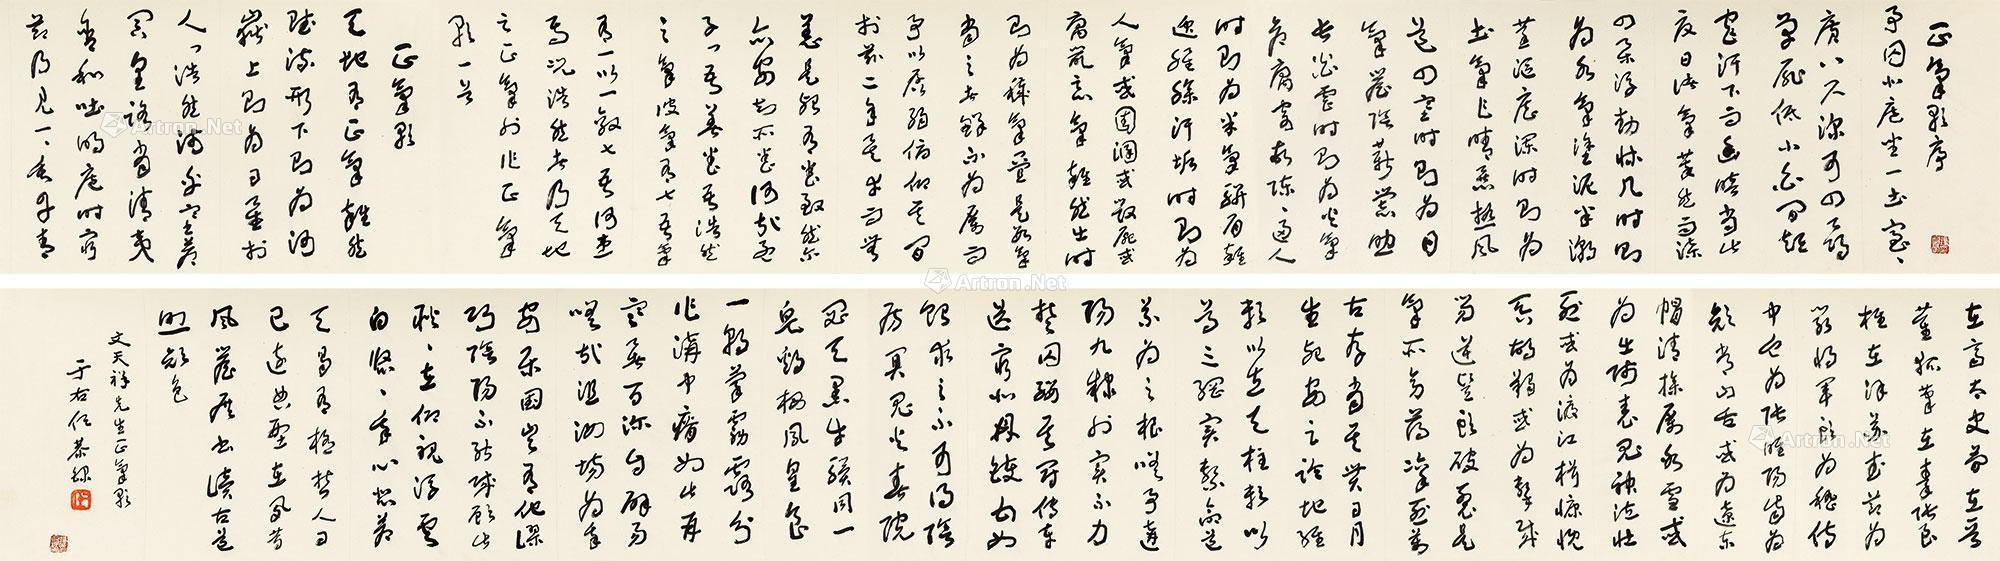 正氣歌序
予囚北庭坐一土室、
廣八尺深可四尋
單扉低小白間短
窄汙下而幽暗當此
夏日諸氣萃然雨潦
四集浮動牀几時則
為水氣塗泥半潮
蒸漚歷瀾時則為
土氣乍晴暴熱風
道四塞時則為日
氣簷陰薪爨助
長炎虐時則為火氣
倉腐寄頓陳陳逼人
時則為米氣駢肩雜
遝腥臊汗垢時則為
人氣或圊溷或毀屍或
腐鼠惡氣雜出時
則為穢氣疊是數氣
當之者鮮不為厲而
予以孱弱俯仰其間
於茲二年矣幸而無
恙是殆有養致然爾
亦安知所養何哉孟
子曰吾善養吾浩然
之氣彼氣有七吾氣
有一以一敵七吾何患
焉況浩然者乃天地
之正氣也作正氣
歌一首
正氣歌
天地有正氣雜然
賦流形下則為河
嶽上則為日星於
人曰浩然沛乎塞蒼
冥皇路當清夷
含和吐明庭時窮
節乃見一一垂丹青
在齊太史簡在晉
董狐筆在秦張良
椎在漢蘇武節為
嚴將軍頭為嵇侍
中血為張睢陽齒為
顏常山舌或為遼東
帽清操厲冰雪或
為出師表鬼神泣壯
烈或為渡江楫慷慨
吞胡羯或為擊賊
笏逆豎頭破裂是
氣所旁薄凜烈萬
古存當其貫日月
生死安足論地維
賴以立天柱賴以
尊三綱實繫命道
義為之根嗟予遘
陽九隸也實不力
楚囚纓其冠傳車
送窮北鼎鑊甘如
飴求之不可得陰
房闃鬼火春院
閟天黑牛驥同一
皂雞棲鳳凰食
一朝蒙霧露分
作溝中瘠如此再
寒暑百沴自辟易
嗟哉沮洳場為我
安樂國豈有他繆
巧陰陽不能賊顧此
耿耿在仰視浮雲
白悠悠我心悲蒼
天曷有極哲人日
已遠典型在夙昔
風簷展書讀古道
照顏色
文天祥先生正氣歌
于右任恭錄
Artron.Net